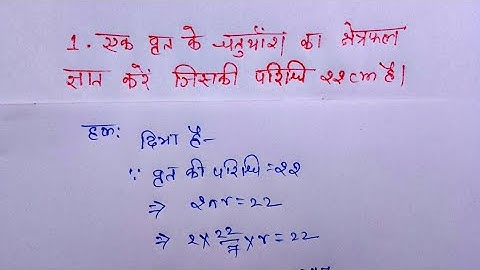 1. एक वृत के चतुर्थांश का क्षेत्रफल
ज्ञात करें जिसकी परिधि २२cm है।
हल: दिया है-
∵ वृत की परिधि=२२
⇒ २πr=22
⇒ २×22/7×r=22